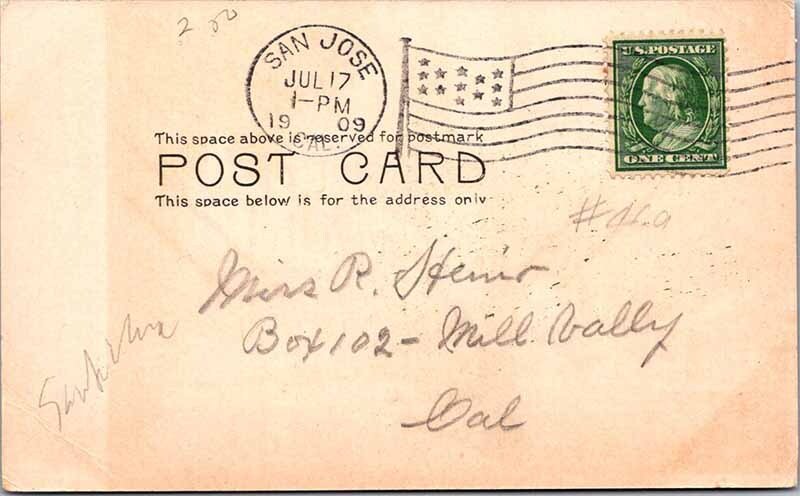 2 00
SAN JOSE
JUL 17
1-PM
1909
CAL.
U.S. POSTAGE
ONE CENT
This space above is reserved for postmark
POST CARD
This space below is for the address only
Miss R.
Box 102 - Mill Vally
Cal